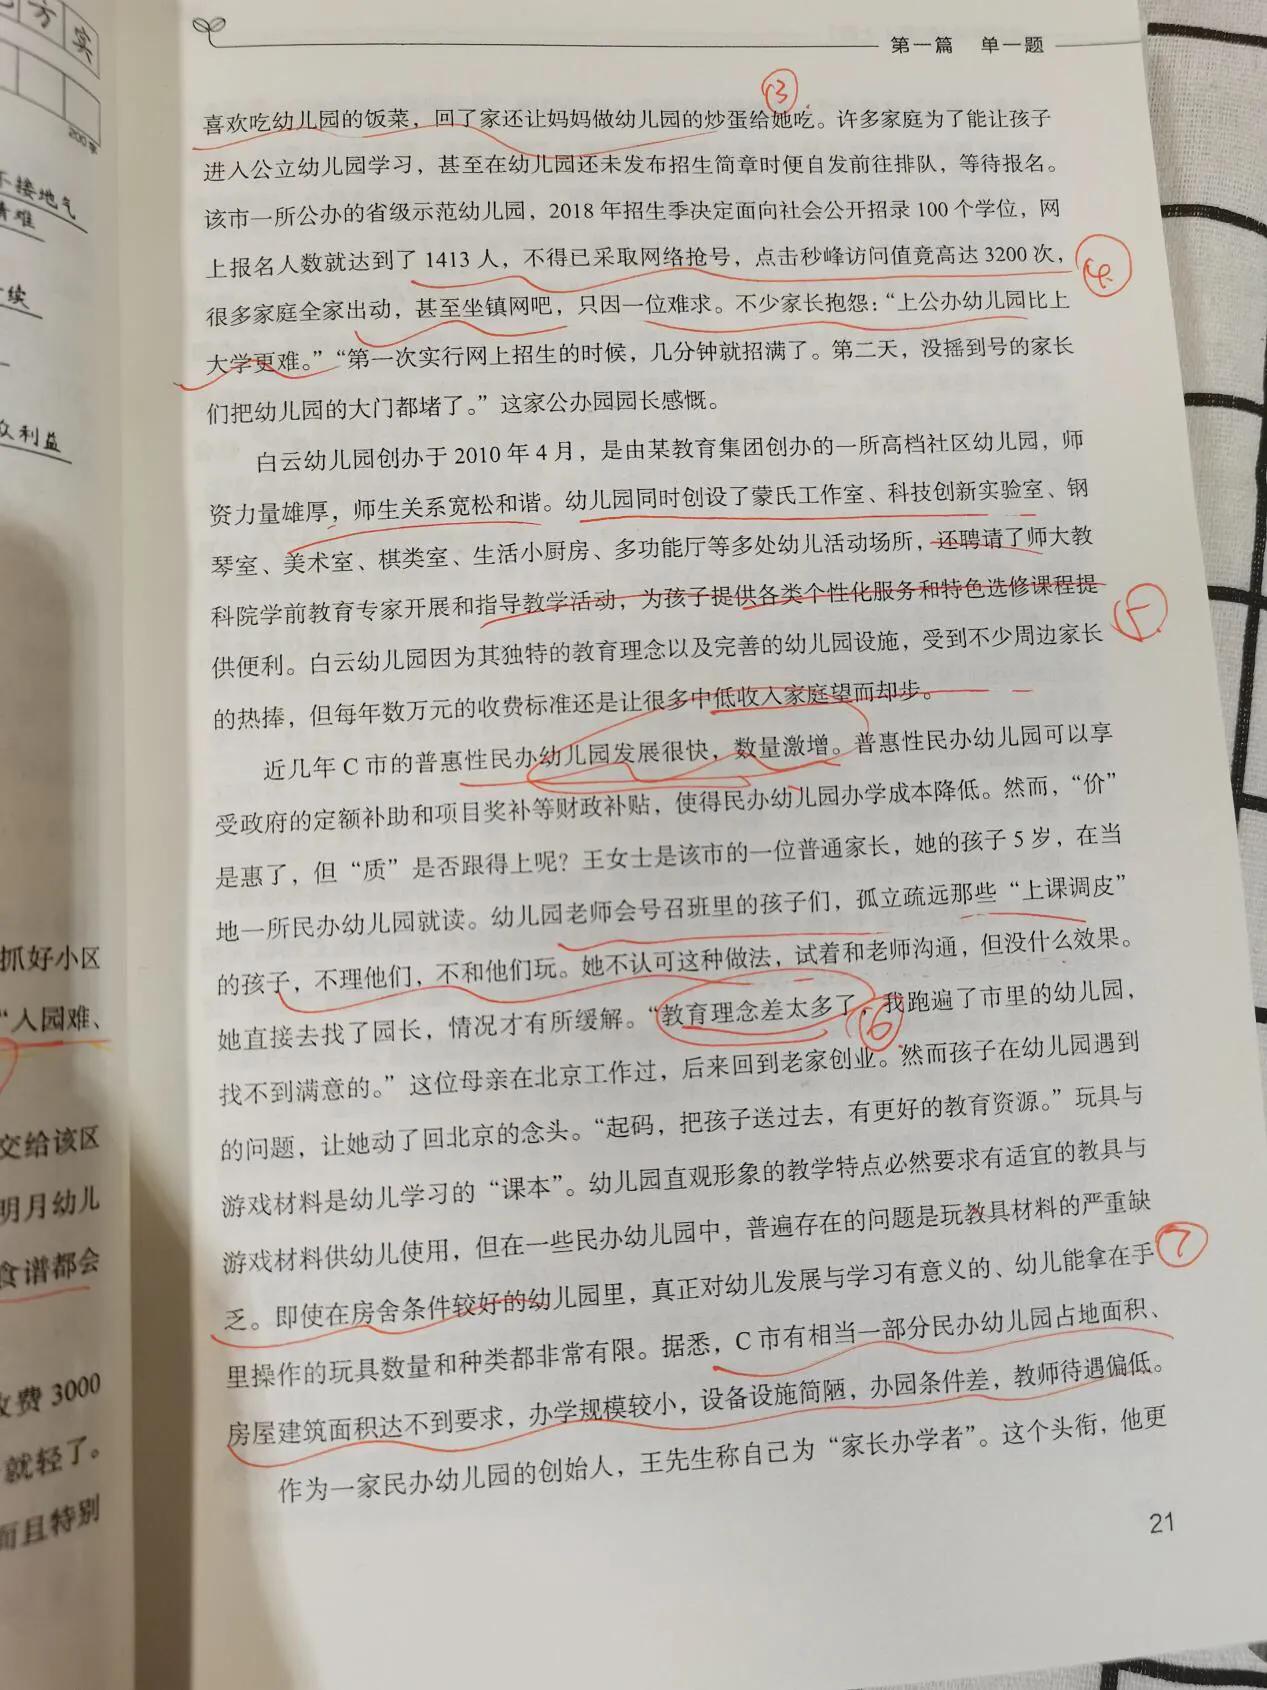 方 实
200字
不接地气
情难
续
众利益
抓好小区
“入园难、
交给该区
明月幼儿
食谱都会
收费 3000
就轻了。
而且特别
第一篇 单一题
③
喜欢吃幼儿园的饭菜，回了家还让妈妈做幼儿园的炒蛋给她吃。许多家庭为了能让孩子
进入公立幼儿园学习，甚至在幼儿园还未发布招生简章时便自发前往排队，等待报名。
该市一所公办的省级示范幼儿园，2018 年招生季决定面向社会公开招录 100 个学位，网
上报名人数就达到了 1413 人，不得已采取网络抢号，点击秒峰访问值竟高达 3200 次，
④
很多家庭全家出动，甚至坐镇网吧，只因一位难求。不少家长抱怨：“上公办幼儿园比上
大学更难。”“第一次实行网上招生的时候，几分钟就招满了。第二天，没摇到号的家长
们把幼儿园的大门都堵了。”这家公办园园长感慨。
白云幼儿园创办于 2010 年 4 月，是由某教育集团创办的一所高档社区幼儿园，师
资力量雄厚，师生关系宽松和谐。幼儿园同时创设了蒙氏工作室、科技创新实验室、钢
琴室、美术室、棋类室、生活小厨房、多功能厅等多处幼儿活动场所，还聘请了师大教
科院学前教育专家开展和指导教学活动，为孩子提供各类个性化服务和特色选修课程提
⑤
供便利。白云幼儿园因为其独特的教育理念以及完善的幼儿园设施，受到不少周边家长
的热捧，但每年数万元的收费标准还是让很多中低收入家庭望而却步。
近几年 C 市的普惠性民办幼儿园发展很快，数量激增。普惠性民办幼儿园可以享
受政府的定额补助和项目奖补等财政补贴，使得民办幼儿园办学成本降低。然而，“价”
是惠了，但“质”是否跟得上呢？王女士是该市的一位普通家长，她的孩子 5 岁，在当
地一所民办幼儿园就读。幼儿园老师会号召班里的孩子们，孤立疏远那些“上课调皮”
的孩子，不理他们，不和他们玩。她不认可这种做法，试着和老师沟通，但没什么效果。
她直接去找了园长，情况才有所缓解。“教育理念差太多了，我跑遍了市里的幼儿园，
⑥
找不到满意的。”这位母亲在北京工作过，后来回到老家创业。然而孩子在幼儿园遇到
的问题，让她动了回北京的念头。“起码，把孩子送过去，有更好的教育资源。”玩具与
游戏材料是幼儿学习的“课本”。幼儿园直观形象的教学特点必然要求有适宜的教具与
游戏材料供幼儿使用，但在一些民办幼儿园中，普遍存在的问题是玩教具材料的严重缺
⑦
乏。即使在房舍条件较好的幼儿园里，真正对幼儿发展与学习有意义的、幼儿能拿在手
里操作的玩具数量和种类都非常有限。据悉，C 市有相当一部分民办幼儿园占地面积、
房屋建筑面积达不到要求，办学规模较小，设备设施简陋，办园条件差，教师待遇偏低。
作为一家民办幼儿园的创始人，王先生称自己为“家长办学者”。这个头衔，他更
21